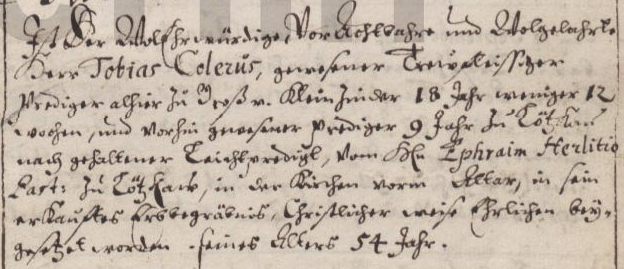 Ist Der WolEhrwürdige, VorAchtbahre und Wolgelahrte
Herr Tobias Colerus, gewesener Trewfleissiger
Prediger alhier Zu Groß v. Klein 18 Jahr weniger 12
wochen, und Vorhin gewesener Prediger 9 Jahr Zu
nach gehaltener Leichpredigt, Vom Hn Ephraim Herlitio
Past: Zu, in der Kirchen vorm Altar, in sein
erkaufftes Erbbegräbnis, Christlicher weise Ehrlichen bey-
gesetzet worden. seines Alters 54 Jahr.